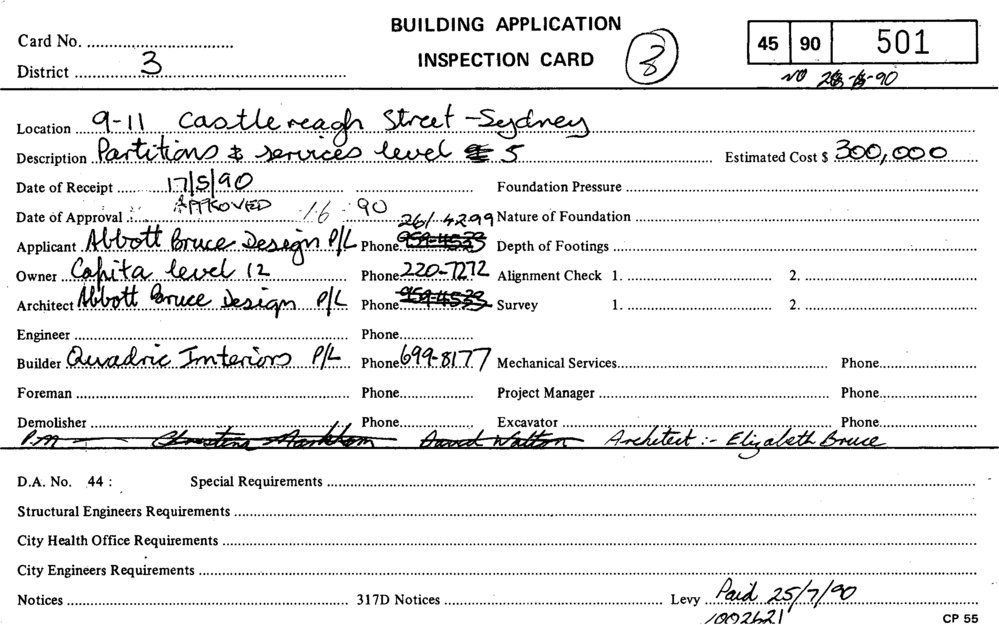 BUILDING APPLICATION
INSPECTION CARD
Card No.
District 3
3
45 90 501
NO
Location 9-11 Castlereagh Street - Sydney
Description Partitions & services level 5 Estimated Cost $ 300,000
Date of Receipt 17/5/90 Foundation Pressure
Date of Approval APPROVED 1/6 90 Nature of Foundation
261-4299
Applicant Abbott Bruce Design P/L Phone 959-4533 Depth of Footings
Owner Capita level 12 Phone 220-7272 Alignment Check 1. 2.
Architect Abbott Bruce Design P/L Phone 959-4533 Survey 1. 2.
Engineer Phone
Builder Quadric Interiors P/L Phone 699-8177 Mechanical Services Phone
Foreman Phone Project Manager Phone
Demolisher Phone Excavator Phone
P.M - David Walton Architect :- Elizabeth Bruce
D.A. No. 44 : Special Requirements
Structural Engineers Requirements
City Health Office Requirements
City Engineers Requirements
Notices 317D Notices Levy Paid 25/7/90
1002621
CP 55